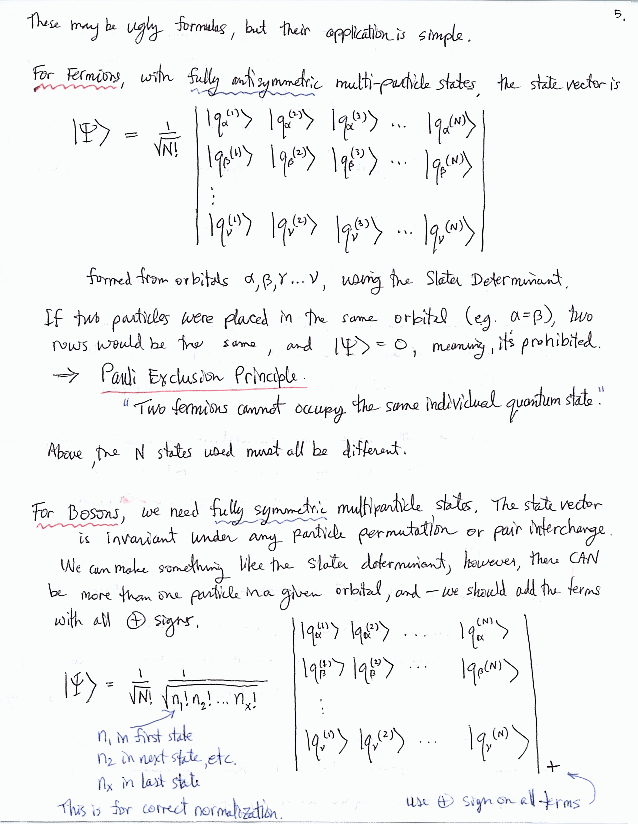 5.
These may be ugly formulas, but their application is simple.
For Fermions, with fully antisymmetric multi-particle states, the state vector is
|Ψ⟩ = 1/√N! | |q_α^(1)⟩ |q_α^(2)⟩ |q_α^(3)⟩ ... |q_α^(N)⟩ |
|q_β^(1)⟩ |q_β^(2)⟩ |q_β^(3)⟩ |q_β^(N)⟩
⋮
|q_ν^(1)⟩ |q_ν^(2)⟩ |q_ν^(3)⟩ ... |q_ν^(N)⟩
formed from orbitals α,β,γ...ν, using the Slater Determinant.
If two particles were placed in the same orbital (eg. α=β), two
rows would be the same, and |Ψ⟩=0, meaning, it's prohibited.
⇒ Pauli Exclusion Principle.
"Two fermions cannot occupy the same individual quantum state."
Above, the N states used must all be different.
For Bosons, we need fully symmetric multiparticle states. The state vector
is invariant under any particle permutation or pair interchange.
We can make something like the Slater determinant, however, there CAN
be more than one particle in a given orbital, and — we should add the terms
with all ⊕ signs.
|q_α^(1)⟩ |q_α^(2)⟩ .... |q_α^(N)⟩
|Ψ⟩ = 1/√N! 1/√n₁!n₂!...nₓ! |q_β^(1)⟩ |q_β^(2)⟩ ... |q_β^(N)⟩
⋮
|q_ν^(1)⟩ |q_ν^(2)⟩ ... |q_ν^(N)⟩ +
n₁ in first state
n₂ in next state, etc.
nₓ in last state
This is for correct normalization.
use ⊕ sign on all terms